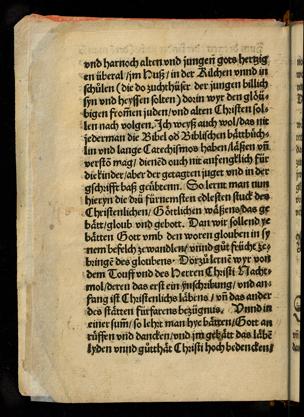 vnd harnoch alten vnd jungen gots hertzig
en überal / jm Huß / in der Kuchen vnnd in
schůlen (die do zuchthüser der jungen billich
syn vnd heyssen solten) dozin wyr den glöu-
bigen fromen juden / vnd alten Christen sol-
len nach volgen. Ich weyß auch wol / das nit
jederman die Bibel od Biblischen bättbüch-
lin vnd lange Catechismos haben / läsen vn̄
verstō mag / dienēd ouch nit anfenglich für
die kinder / aber der getagten juget vnd in der
gschrifft baß geübtenn. So lernt man nun
hieryn die drü fürnemsten edlesten stuck des
Christenlichen / Göttlichen wäsens / das ge
bätt / gloub vnd gebott. Dan wir sollend ye
bätten Gott vmb den woren glouben in sy
nem befelch zewandlen / vnnd gůt frücht ze-
bringē des gloubens. Dörzů lernē wyr von
dem Touff vnd des Herren Christi Nacht-
mol / deren das erst ein ynschribung / vnd an-
fang ist Christenlichs läbens / vn̄ das ander
des stätten fürfarens bezügnis. Vnnd in
einer sum / so lehrt man hye bätten / Gott an
rüffen vnd dancken / vnd jm gebätt das läbē
lyden vnnd gůtthät Christi hoch bedencken /